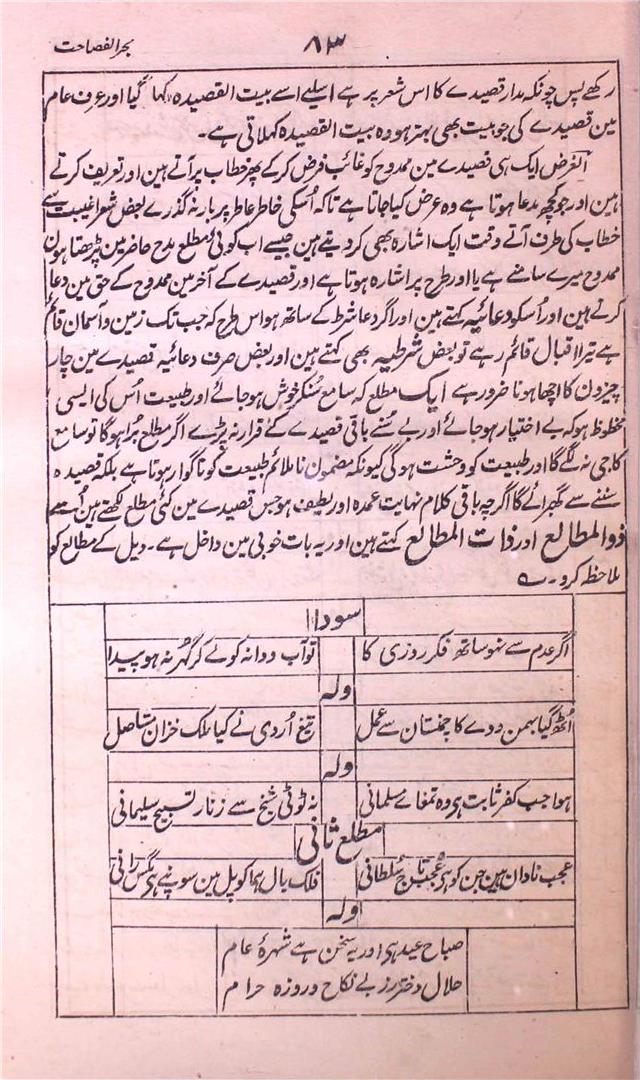 بحر الفصاحت
۸۳
رکھے پس چونکہ مدار قصیدے کا اس شعر پر ہے اسلیے اسے بیت القصیدہ کہا گیا اور عرف عام
مین قصیدے کی جو بیت بھی بہتر ہو وہ بیت القصیدہ کہلاتی ہے۔
الغرض ایک ہی قصیدے مین ممدوح کو غائب فرض کرکے پھر خطاب پر آتے ہین اور تعریف کرتے
ہین اور جو کچھ مدعا ہوتا ہے وہ عرض کیا جاتا ہے تاکہ اُسکی خاطر عاطر پر بار نہ گذرے بعض شعرا غیبت سے
خطاب کی طرف آتے وقت ایک اشارہ بھی کر دیتے ہین جیسے اب کوئی مطلع مدح حاضر مین پڑھتا ہون
ممدوح میرے سامنے ہے یا اور طرح پر اشارہ ہوتا ہے اور قصیدے کے آخر مین ممدوح کے حق مین دعا
کرتے ہین اور اُسکو دعائیہ کہتے ہین اور اگر دعا شرط کے ساتھ ہو اس طرح کہ جب تک زمین و آسمان قائم
ہے تیرا اقبال قائم رہے تو بعض شرطیہ بھی کہتے ہین اور بعض صرف دعائیہ قصیدے مین چار
چیزون کا اچھا ہونا ضرور ہے ایک مطلع کہ سامع سُنکر خوش ہو جائے اور طبیعت اُس کی ایسی
محظوظ ہو کہ بے اختیار ہو جائے اور بے سُنے باقی قصیدے کے قرار نہ پڑے اگر مطلع بُرا ہو گا تو سامع
کا جی نہ لگے گا اور طبیعت کو وحشت ہو گی کیونکہ مضمون ناملائم طبیعت کو ناگوار ہوتا ہے بلکہ قصیدہ
سننے سے گھبرائے گا اگرچہ باقی کلام نہایت عمدہ اور لطیف ہو جس قصیدے مین کئی مطلع لکھتے ہین اُسے
ذو المطالع اور ذات المطالع کہتے ہین اور یہ بات خوبی مین داخل ہے۔ ذیل کے مطالع کو
ملاحظہ کرو۔
سودا
اگر عدم سے نہو ساتھ فکر روزی کا تو آب و دانہ کو لے کر گہر نہ ہو پیدا
ولہ
اُٹھ گیا بہمن و دے کا چمنستان سے عمل تیغ اُردی نے کیا ملک خزان متاصل
ولہ
ہوا جب کفر ثابت ہی وہ تمغاے مسلمانی نہ ٹوٹی شیخ سے زنار تسبیح سلیمانی
مطلع ثانی
عجب نادان ہین جن کو ہی عُجب تاج سُلطانی فلک بال ہما کو پل مین سونپے ہی مگس رانی
ولہ
صباح عید ہی اور یہ سخن ہے شہرۂ عام
حلال دختر رز بے نکاح و روزہ حرام